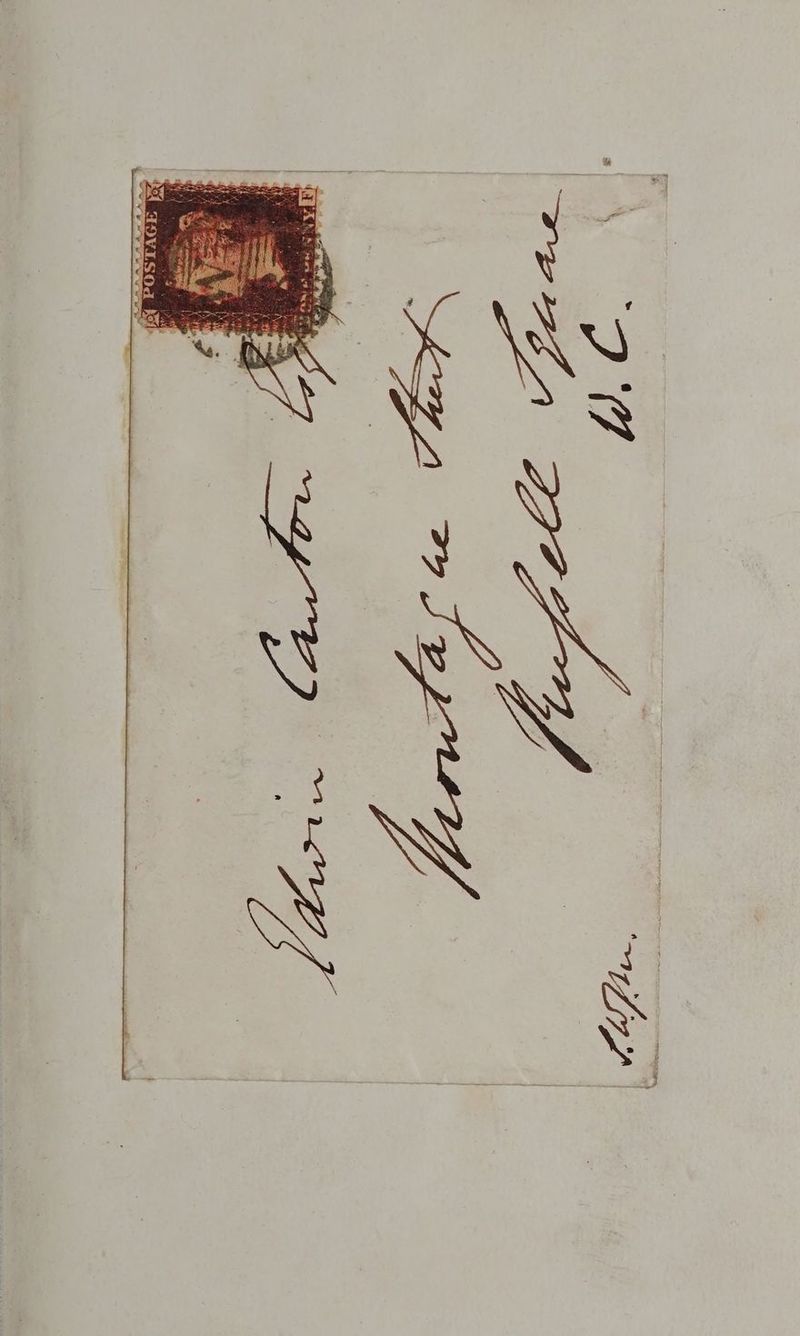 POSTAGE
ONE PENNY
F
Edwin Canton Esqr
Montague Street
Russell Square
W. C.